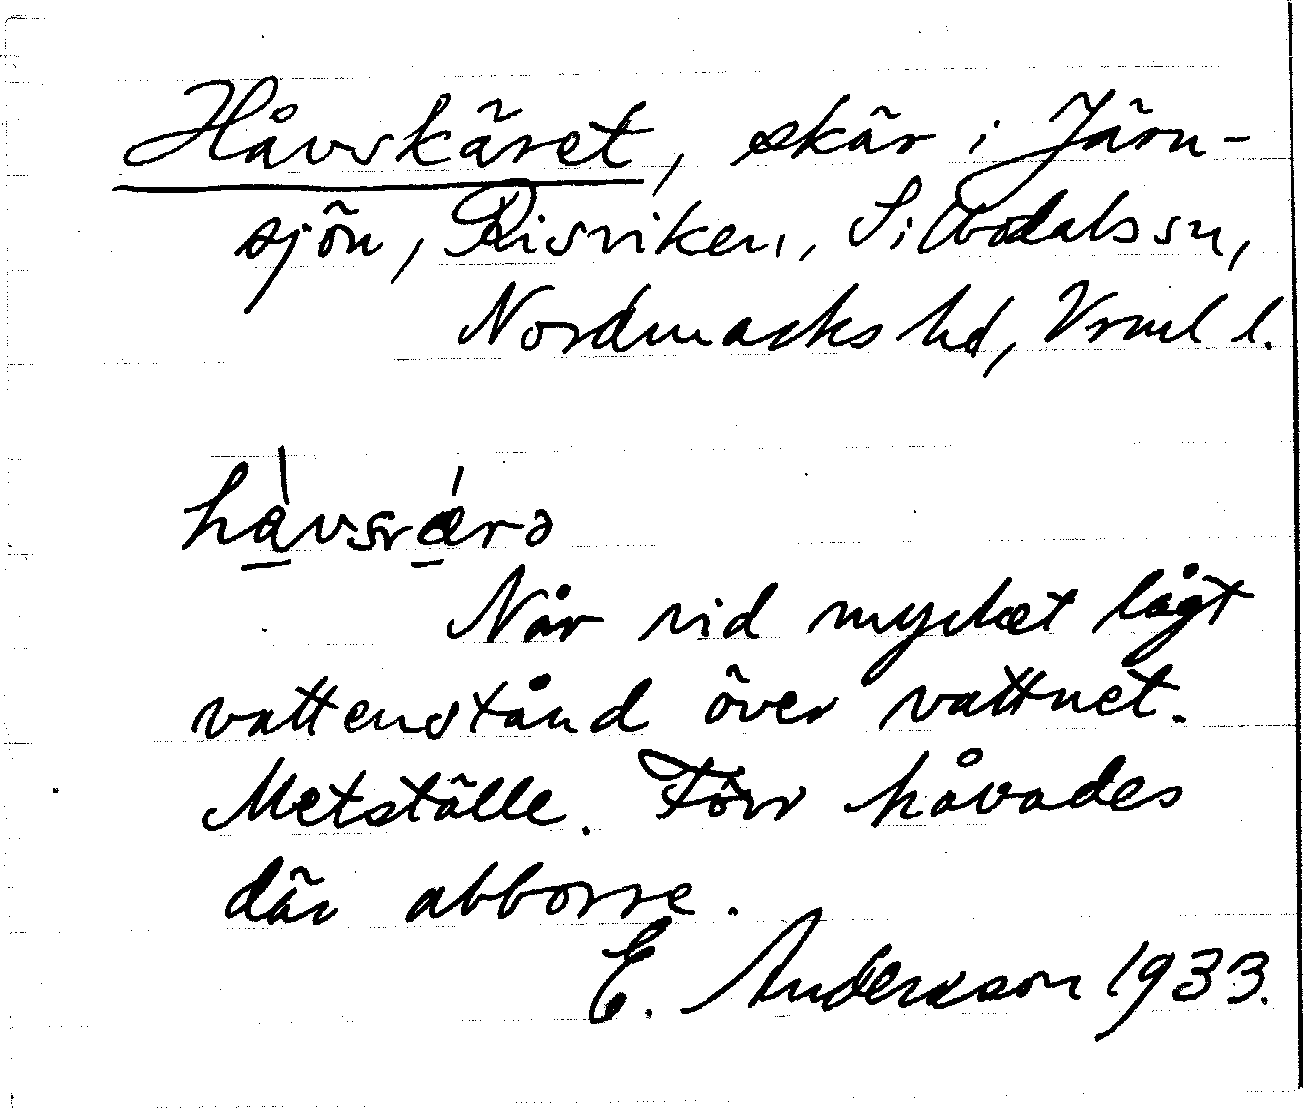 Håvskäret, skär i Järn-
sjön, Risviken, Silbodals sn,
Nordmarks hd, Vrml l.
Når vid mycket lågt
vattenstånd över vattnet.
Metställe. Förr håvades
där abborre.
E. Andersson 1933.